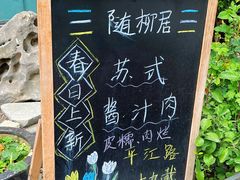 随柳居
春日上新
苏式
酱汁肉
皮糯肉烂
平江路